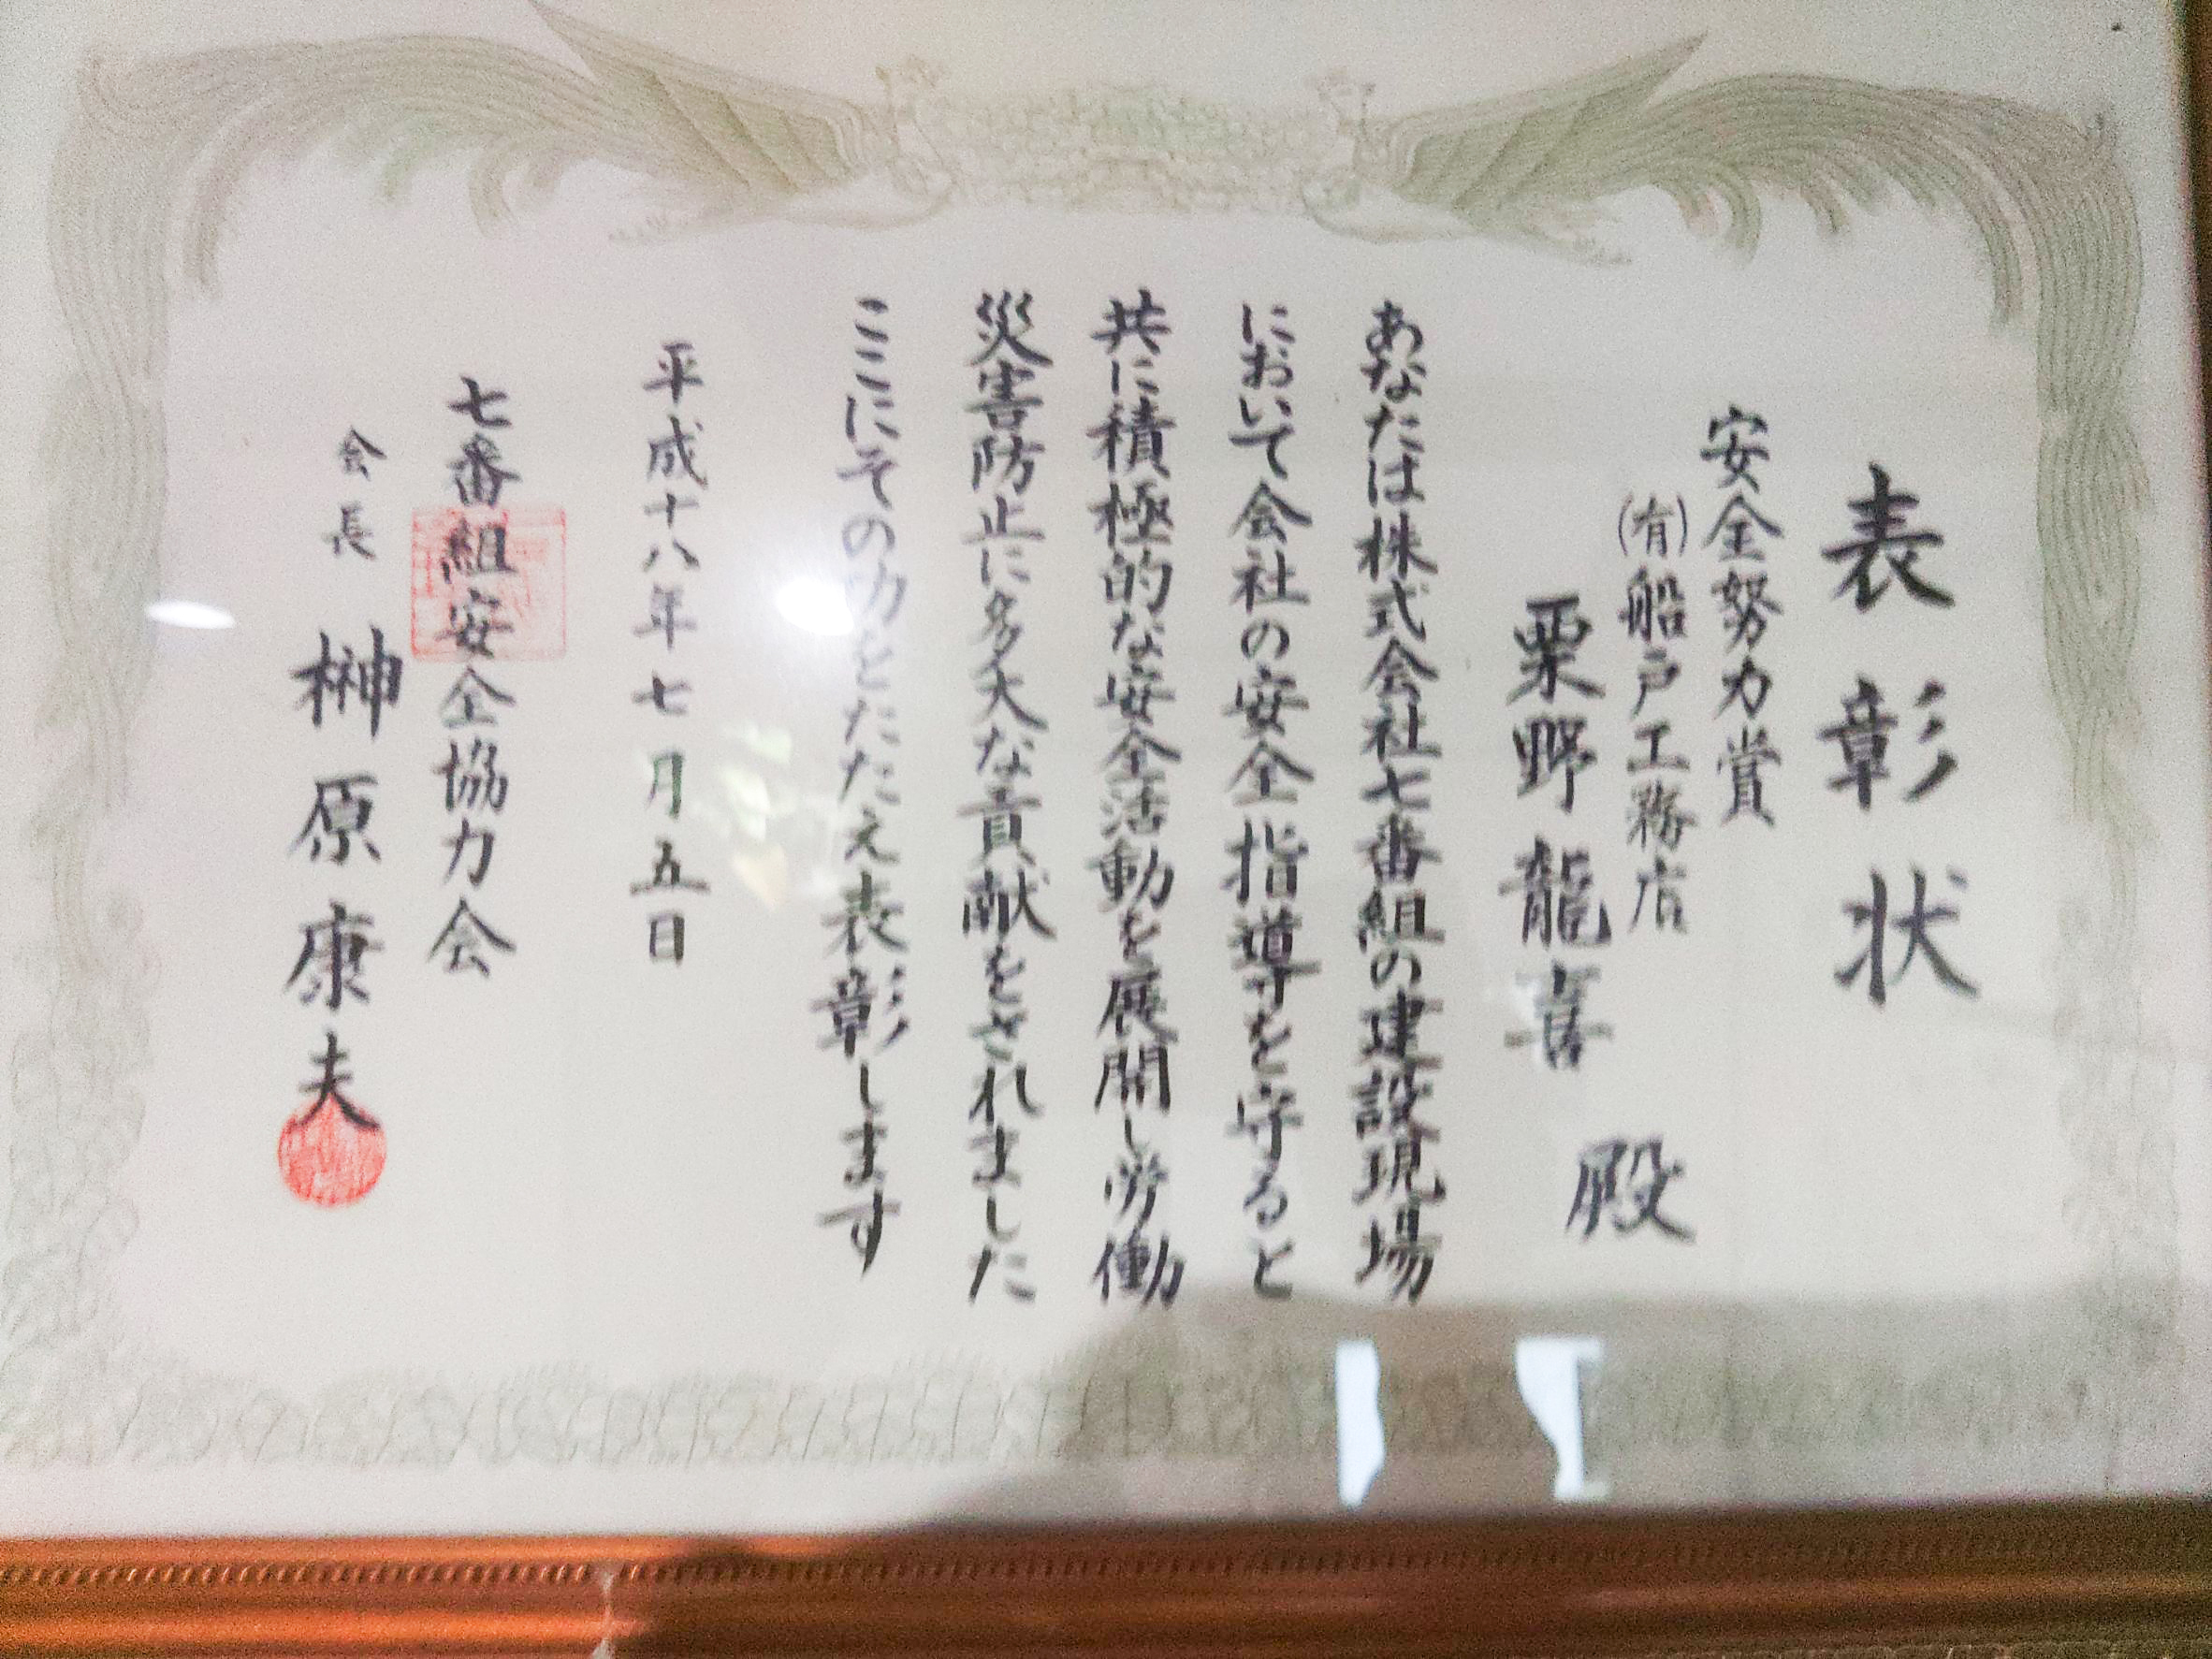 表彰状
安全努力賞
㈲船戸工務店
栗野龍喜 殿
あなたは株式会社七番組の建設現場
において会社の安全指導を守ると
共に積極的な安全活動を展開し労働
災害防止に多大な貢献をされました
ここにその功をたたえ表彰します
平成十八年七月五日
七番組安全協力会
会長 榊原康夫